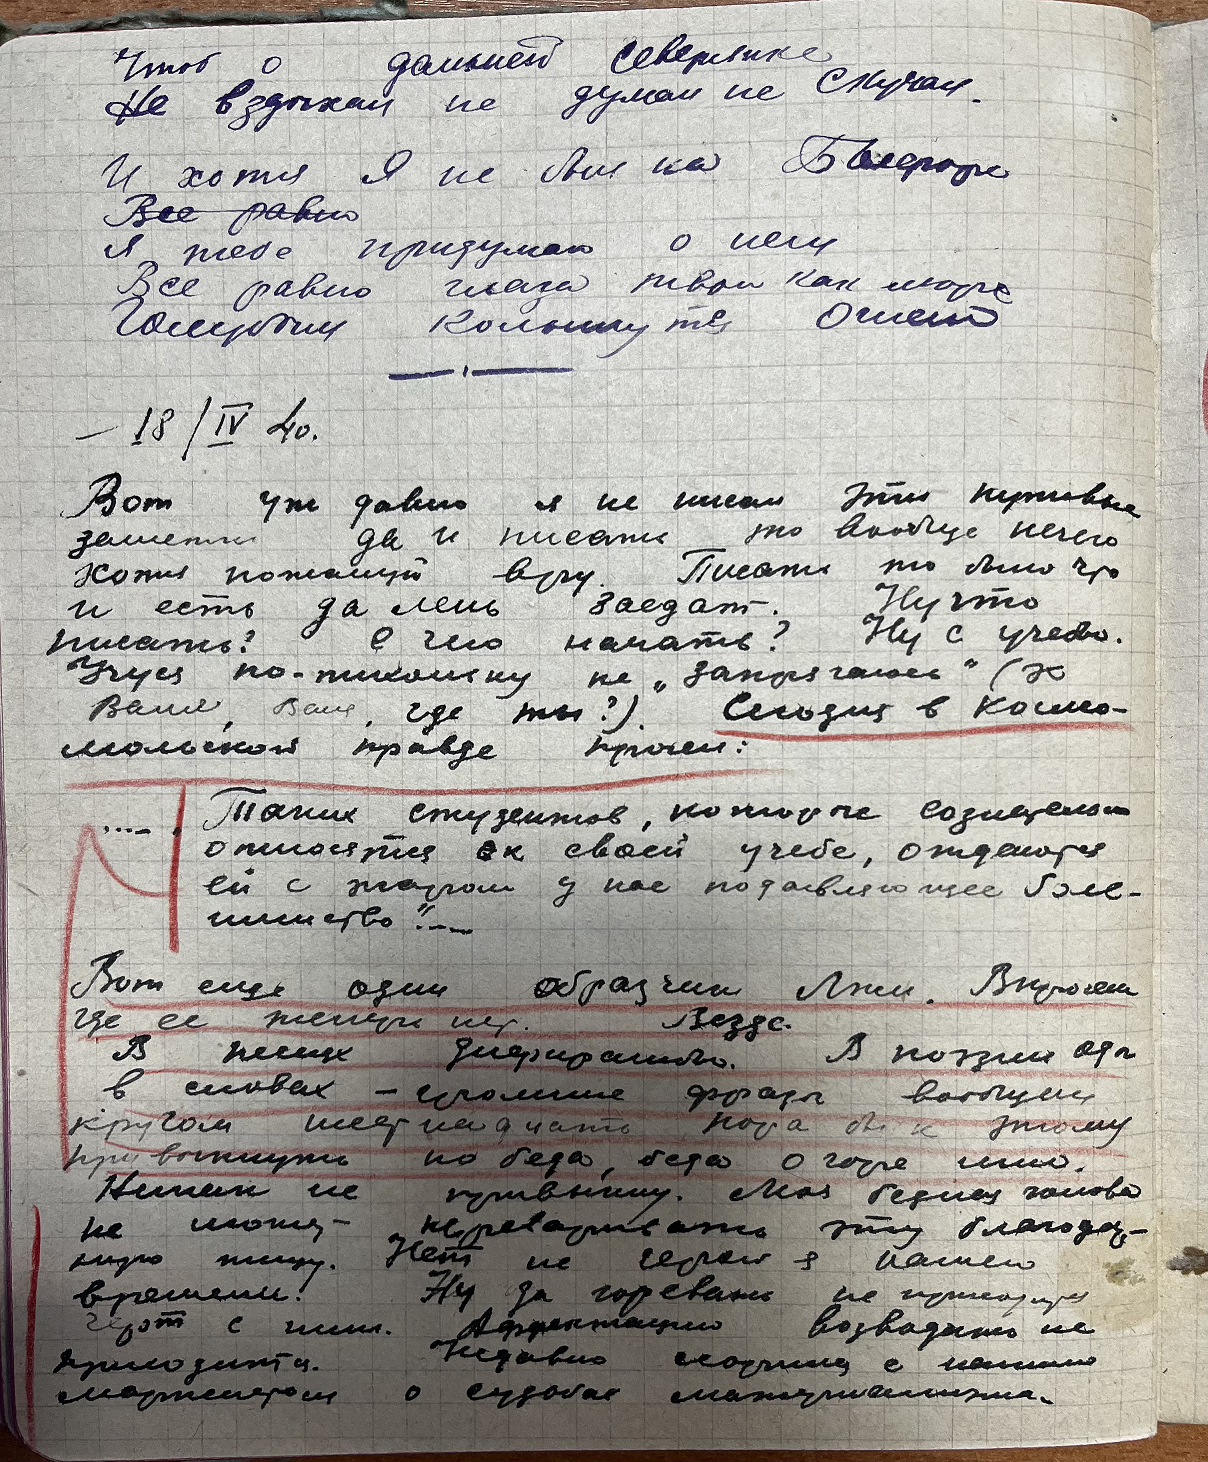 Чтоб о дальней северянке
Не вздыхал не думал не скучал.
И хотя я не был на
Все равно
Я тебе придумаю о нем
Все равно глаза твои как море
Голубым колыхнутся
– 18/IV 40.
Вот уж давно я не писал эти путевые
заметки да и писать то вообще нечего
хотя пожалуй вру. Писать то было что
и есть да лень заедает. Ну что
писать? С чего начать? Ну с учебы.
Учусь по-тихоньку не „запрягаюсь“ (Эх
Ваня, Ваня, где ты?). Сегодня в Комсо-
мольской правде прочел:
...–. Таких студентов, которые сознательно
относятся к своей учебе, отдаются
ей с жаром у нас подавляющее боль-
шинство“.–
Вот еще один образчик лжи. Впрочем
где ее теперь нет. Везде.
В песнях дифирамбы. В поэзии оды
в словах – громкие фразы вообщем
кругом шестнадцать пора бы к этому
привыкнуть но беда, беда о горе мне.
Никак не привыкну. Моя бедная голова
не может переваривать эту благодат-
ную пищу. Нет не герой я нашего
времени. Ну да горевать не приходится
черт с ним. возводить не
приходится. Недавно спорил с нашим
марксистом о судьбах материализма.